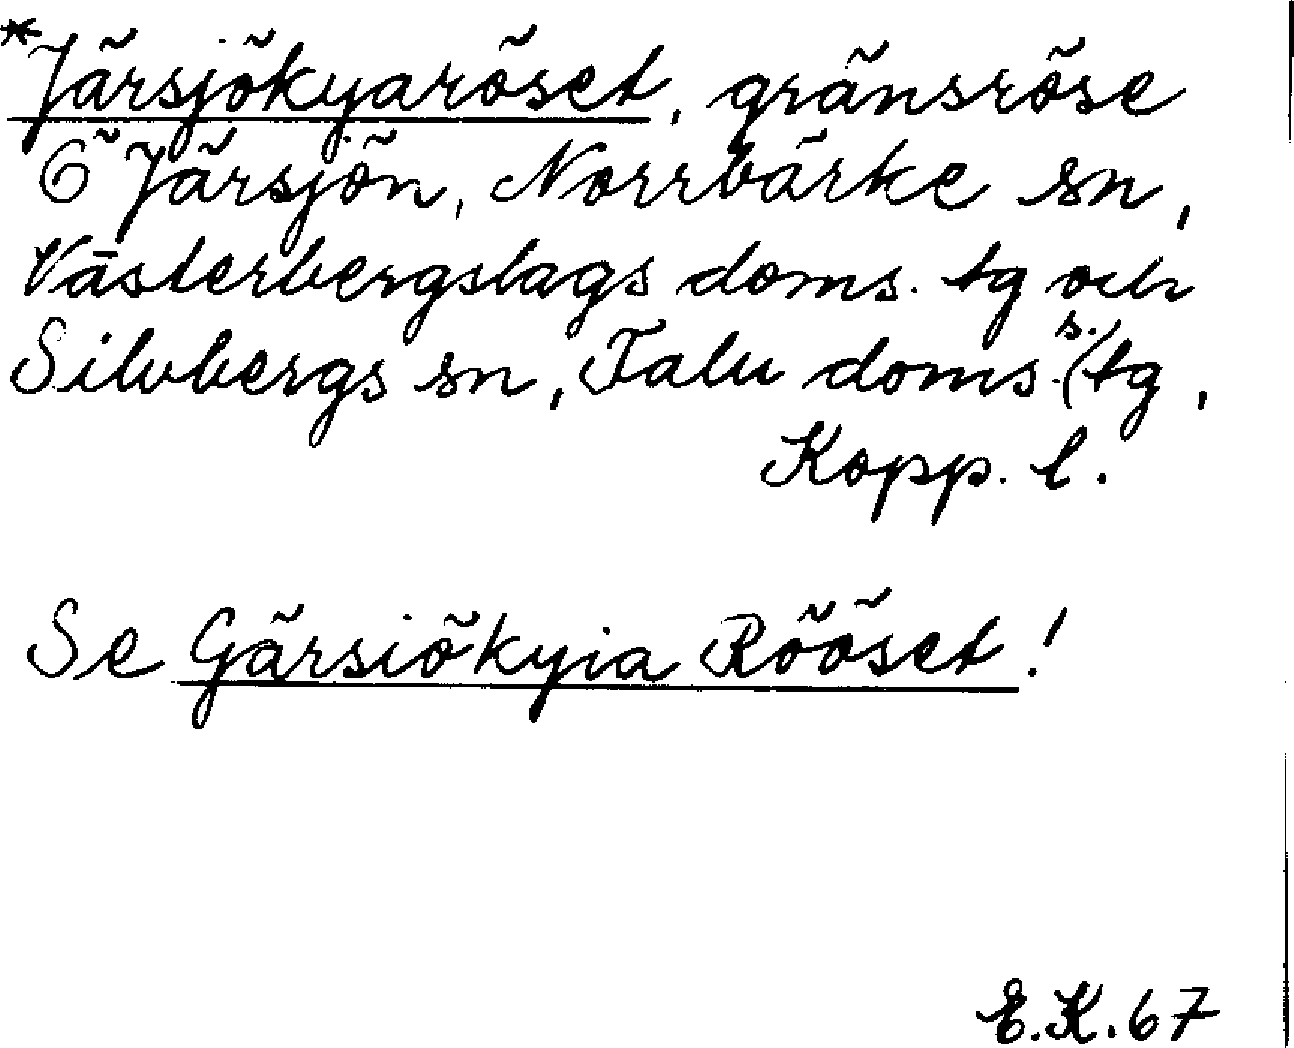 *Järsjökyaröset, gränsröse
Ö Järsjön, Norrbärke sn,
Västerbergslags doms. tg och
Silvbergs sn, Falu doms.s. tg,
Kopp. l.
Se Gärsiökyia Rööset!
E.K.67